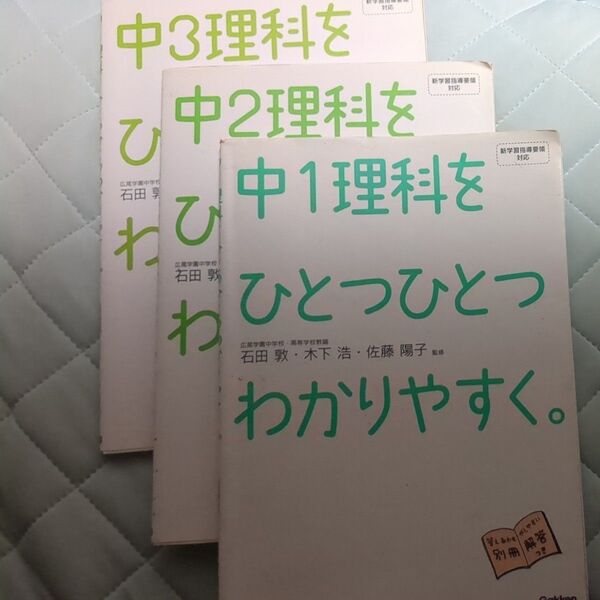 中3理科を
新学習指導要領
対応
ひ
広尾学園中学校
石田 敦
わ
中2理科を
新学習指導要領
対応
ひ
広尾学園中学校
石田 敦
わ
中1理科を
新学習指導要領
対応
ひとつひとつ
広尾学園中学校・高等学校教諭
石田 敦・木下 浩・佐藤 陽子 監修
わかりやすく。
答えあわせがしやすい
別冊解答
つき
Gakken